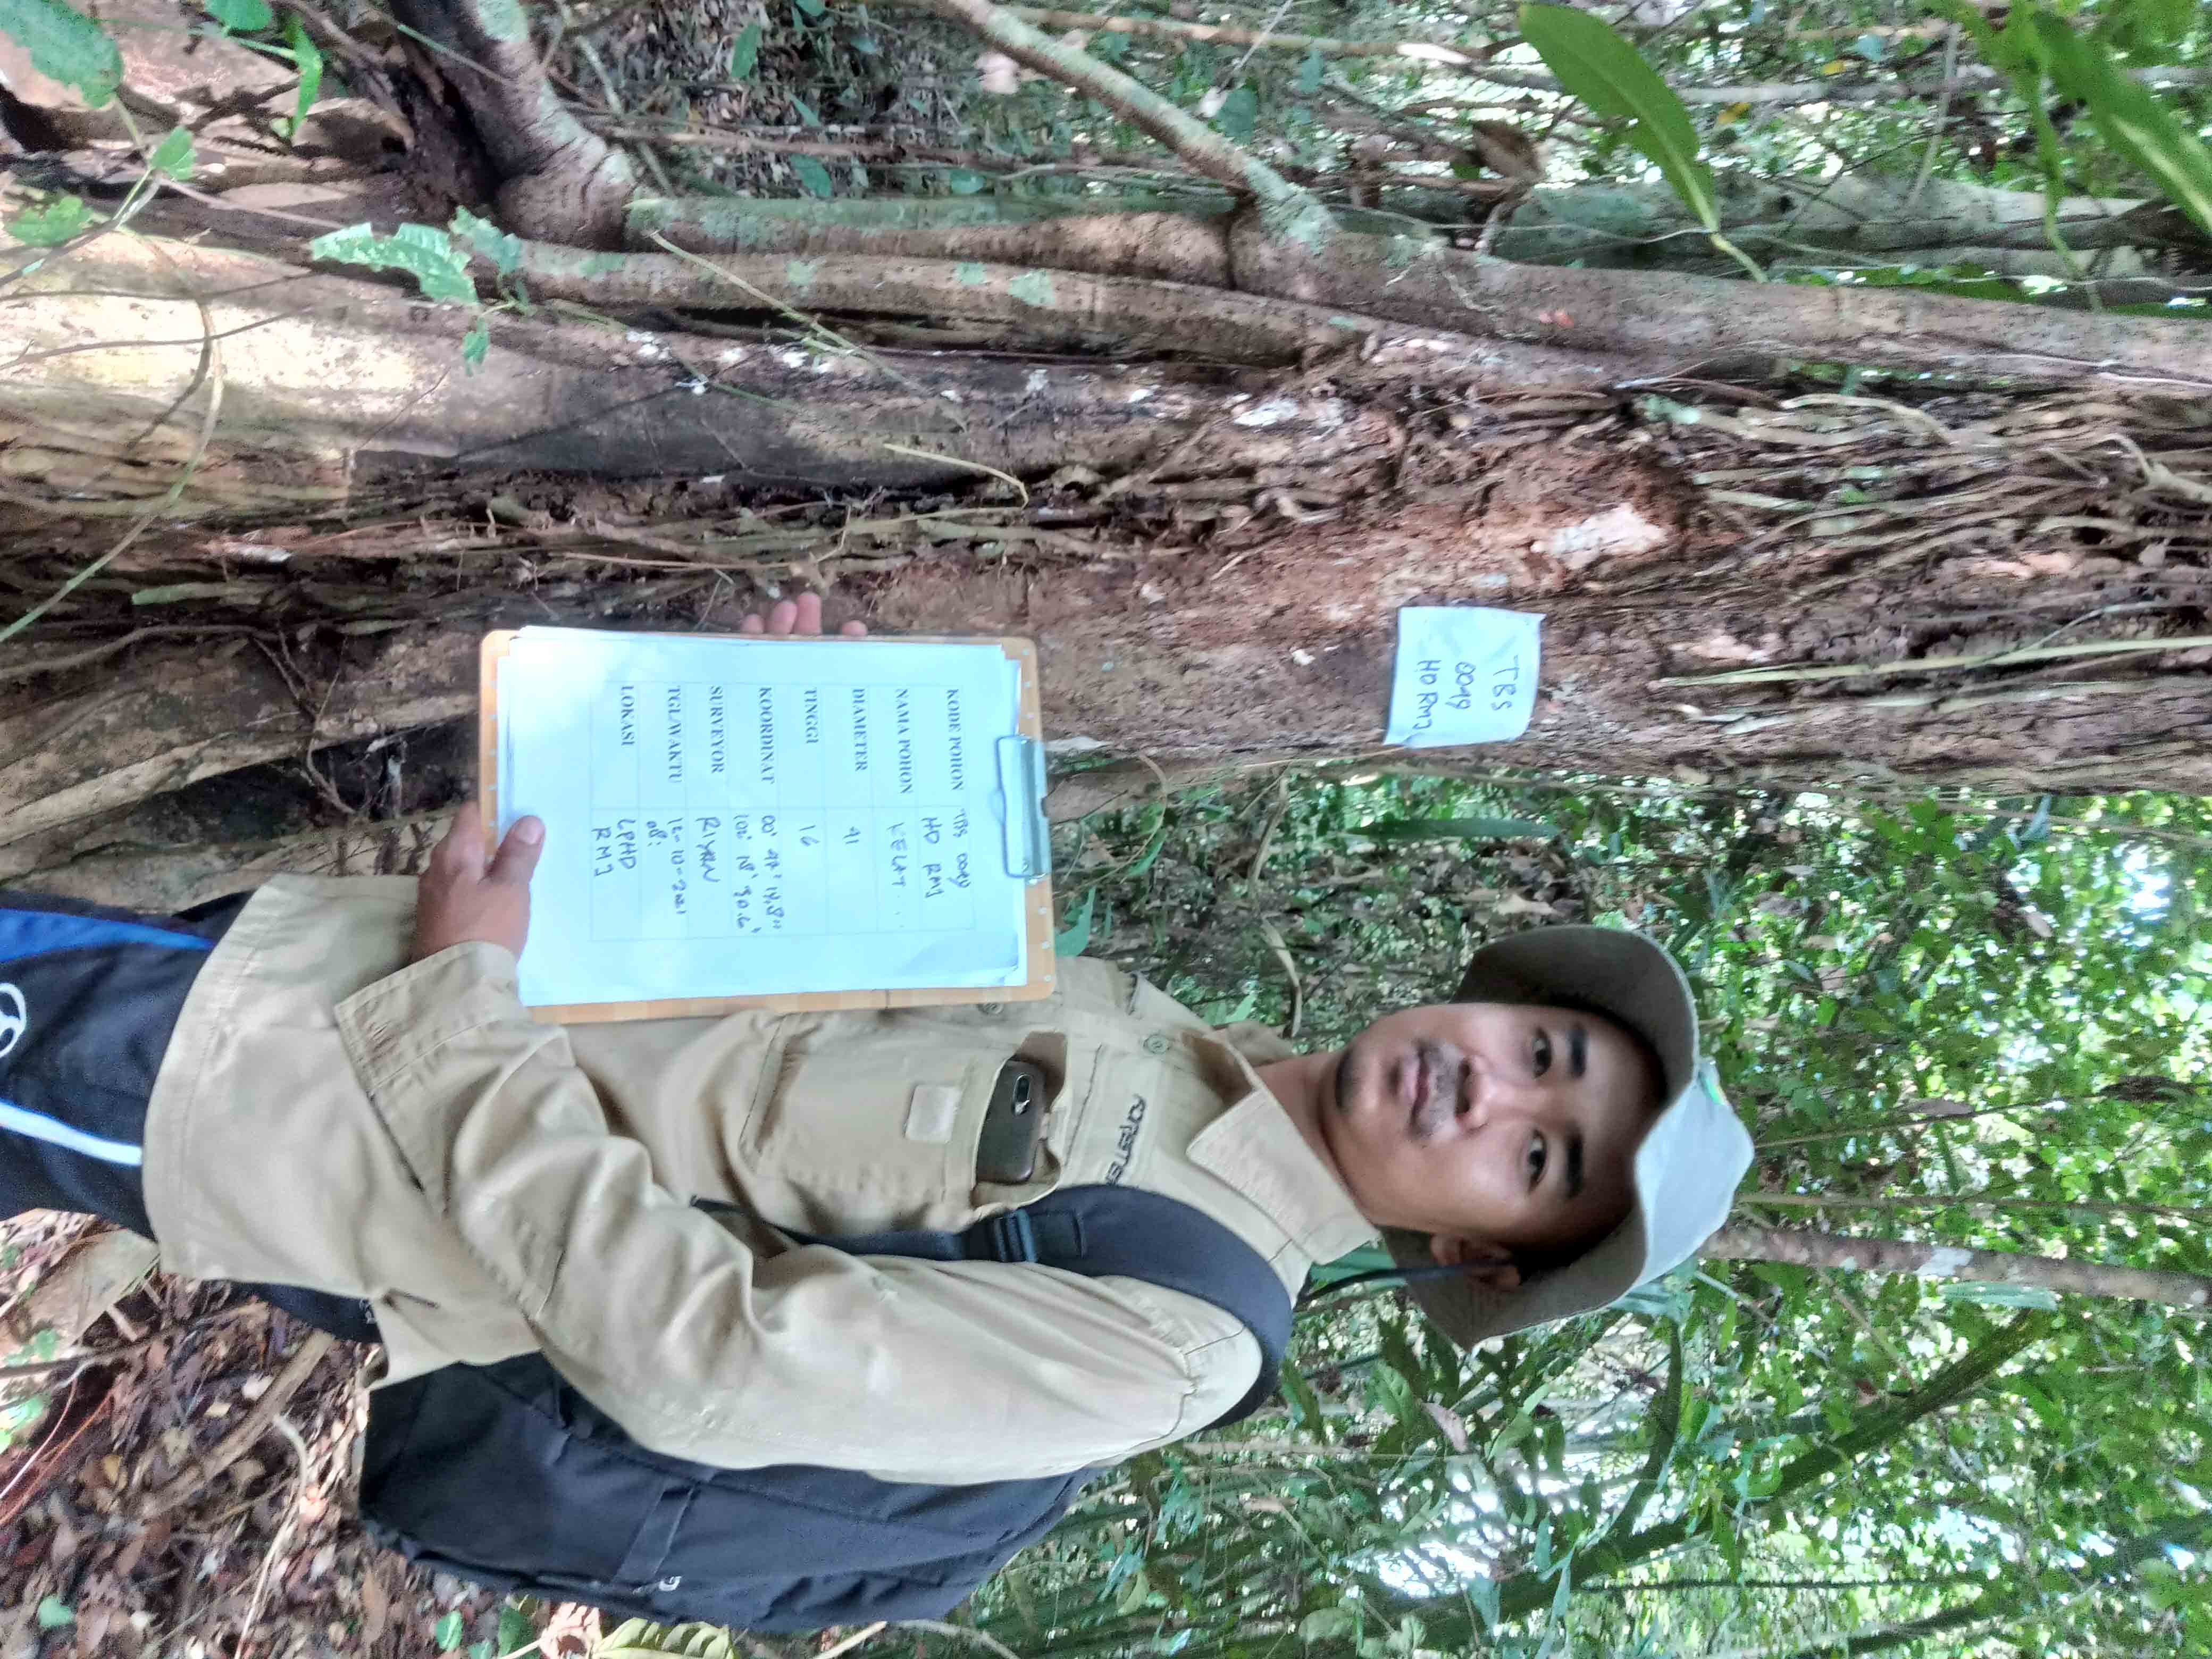 TBS
0049
HD RMJ
FORESTER
KODE POHON TBS 0049
HD RMJ
NAMA POHON KELAT
DIAMETER 41
TINGGI 16
KOORDINAT 00° 47' 14,8"
102° 18' 30.6"
SURVEYOR RIYAN
TGL/WAKTU 12-10-2021
08:
LOKASI LPHD
RMJ